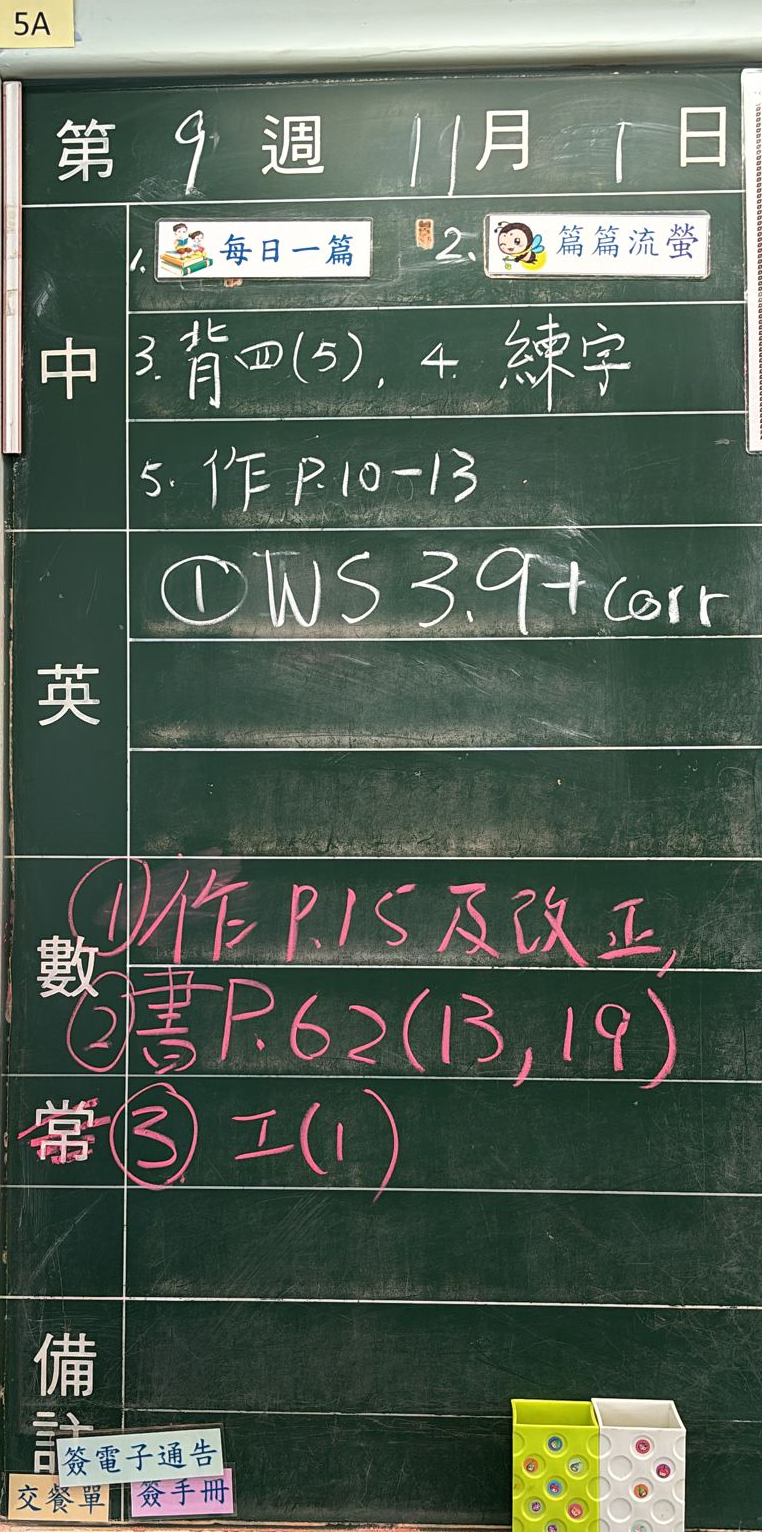 5A
第 9 週 11月 1 日
中
1. 每日一篇 2. 篇篇流螢
3. 背四(5), 4. 練字
5. 作 P.10-13
英
① WS 3.9 + corr
數
① 作 P.15 及改正,
② 書 P.62(13, 19)
常
③ 工(1)
備註
簽電子通告
交餐單 簽手冊